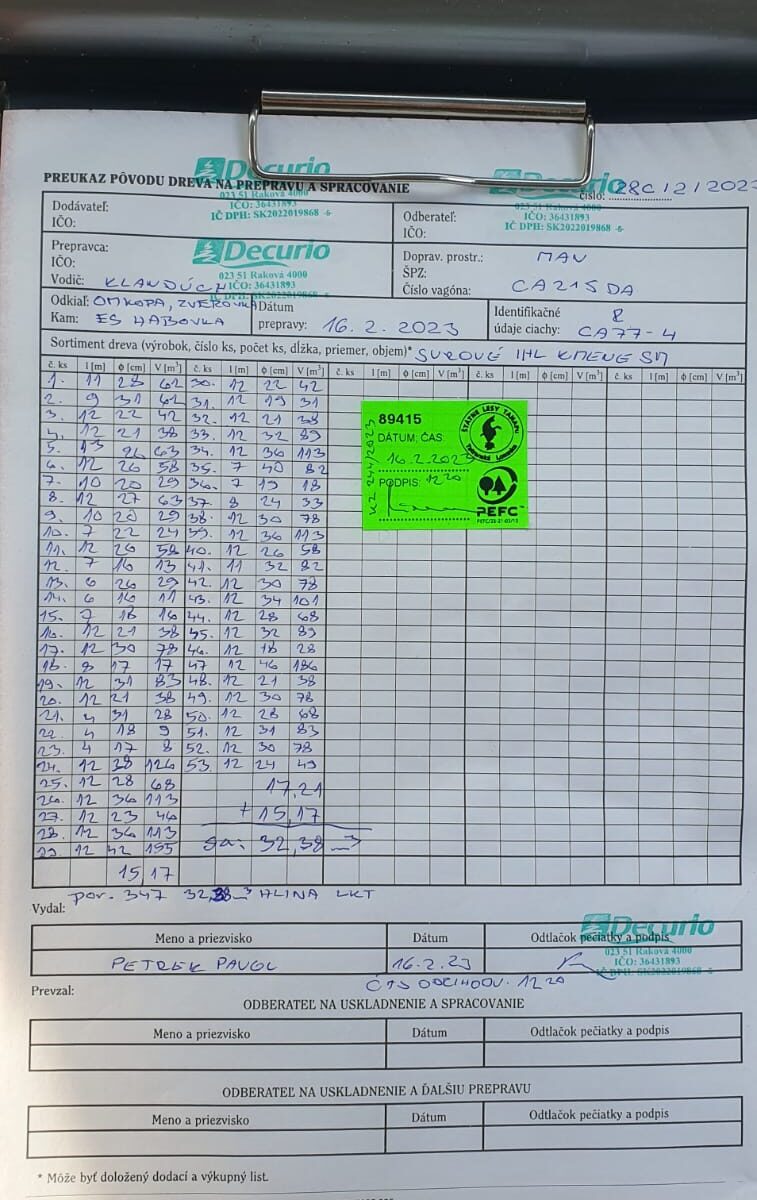 Decurio
023 51 Raková 4000
IČO: 36431893
IČ DPH: SK2022019868
Decurio
023 51 Raková 4000
IČO: 36431893
IČ DPH: SK2022019868 -6-
PREUKAZ PÔVODU DREVA NA PREPRAVU A SPRACOVANIE
číslo: 28C/2/2023
Dodávateľ:
IČO:
Odberateľ:
IČO:
Prepravca:
IČO:
Vodič: KLANDÚCH
Decurio
023 51 Raková 4000
IČO: 36431893
Doprav. prostr.: MAN
ŠPZ:
Číslo vagóna: CA215DA
Odkiaľ: OMKOPA, ZVEROVKA
Kam: ES HABOVKA
Dátum
prepravy: 16.2.2023
Identifikačné
údaje ciachy: CA77-4
Sortiment dreva (výrobok, číslo ks, počet ks, dĺžka, priemer, objem)* SUROVÉ IHL KMENE SM
č. ks l [m] ϕ [cm] V [m³] č. ks l [m] ϕ [cm] V [m³] č. ks l [m] ϕ [cm] V [m³] č. ks l [m] ϕ [cm] V [m³] č. ks l [m] ϕ [cm] V [m³]
1. 11 28 62 30. 12 22 42
2. 9 31 62 31. 12 19 31
3. 12 22 42 32. 12 21 38
4. 12 21 38 33. 12 32 89
5. 13 26 63 34. 12 36 113
6. 12 26 58 35. 7 40 82
7. 10 20 29 36. 7 19 18
8. 12 27 63 37. 8 24 33
9. 10 20 29 38. 12 30 78
10. 7 22 24 39. 12 36 113
11. 12 26 58 40. 12 26 58
12. 7 16 13 41. 11 32 82
13. 6 26 29 42. 12 30 78
14. 6 16 11 43. 12 34 101
15. 7 18 16 44. 12 28 68
16. 12 21 38 45. 12 32 89
17. 12 30 78 46. 12 18 28
18. 8 17 17 47 12 46 186
19. 12 31 83 48. 12 21 38
20. 12 21 38 49. 12 30 78
21. 4 31 28 50. 12 28 68
22. 4 18 9 51. 12 31 83
23. 4 17 8 52. 12 30 78
24. 12 38 126 53. 12 24 49
25. 12 28 68 17,21
26. 12 36 113
27. 12 23 46 + 15,17
28. 12 36 113
29. 12 42 155 Sa: 32,38 m3
15,17
89415
DÁTUM, ČAS
16.2.2023
PODPIS: 12 20
KZ 244/2023
ŠTÁTNE LESY TANAPU
Tatranská Lomnica
PEFC
por. 347 32,38 m3 HLINA LKT
Vydal:
Meno a priezvisko Dátum Odtlačok pečiatky a podpis
PETREK PAVOL 16.2.23
Decurio
023 51 Raková 4000
IČO: 36431893
IČ DPH: SK2022019868 -6-
ČAS ODCHODU. 12 20
Prevzal:
ODBERATEĽ NA USKLADNENIE A SPRACOVANIE
Meno a priezvisko Dátum Odtlačok pečiatky a podpis
ODBERATEĽ NA USKLADNENIE A ĎALŠIU PREPRAVU
Meno a priezvisko Dátum Odtlačok pečiatky a podpis
* Môže byť doložený dodací a výkupný list.